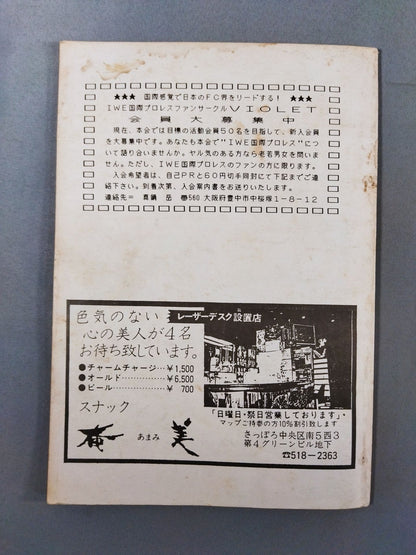 ★★★ 国際感覚で日本のFC界をリードする! ★★★
IWE国際プロレスファンサークルVIOLET
会員大募集中
現在、本会では目標の活動会員50名を目指して、新入会員
を大募集中です。あなたも本会で"IWE国際プロレス"につい
て語り合いませんか。ヤル気のある方なら老若男女を問いま
せん。ただし、IWE国際プロレスのファンの方に限ります。
入会希望者は、自己PRと60円切手同封にて下記までご連
絡下さい。到着次第、入会案内書をお送りいたします。
連絡先= 真鍋 岳 〠560 大阪府豊中市中桜塚1-8-12
色気のない
心の美人が4名
お待ち致しています。
レーザーデスク設置店
●チャームチャージ…¥1,500
●オールド…………¥6,500
●ビール……………¥ 700
スナック
奄美
あまみ
「日曜日・祭日営業しております」・
マップご持参の方10%割引致します
さっぽろ中央区南5西3
第4グリーンビル地下
☎518-2363